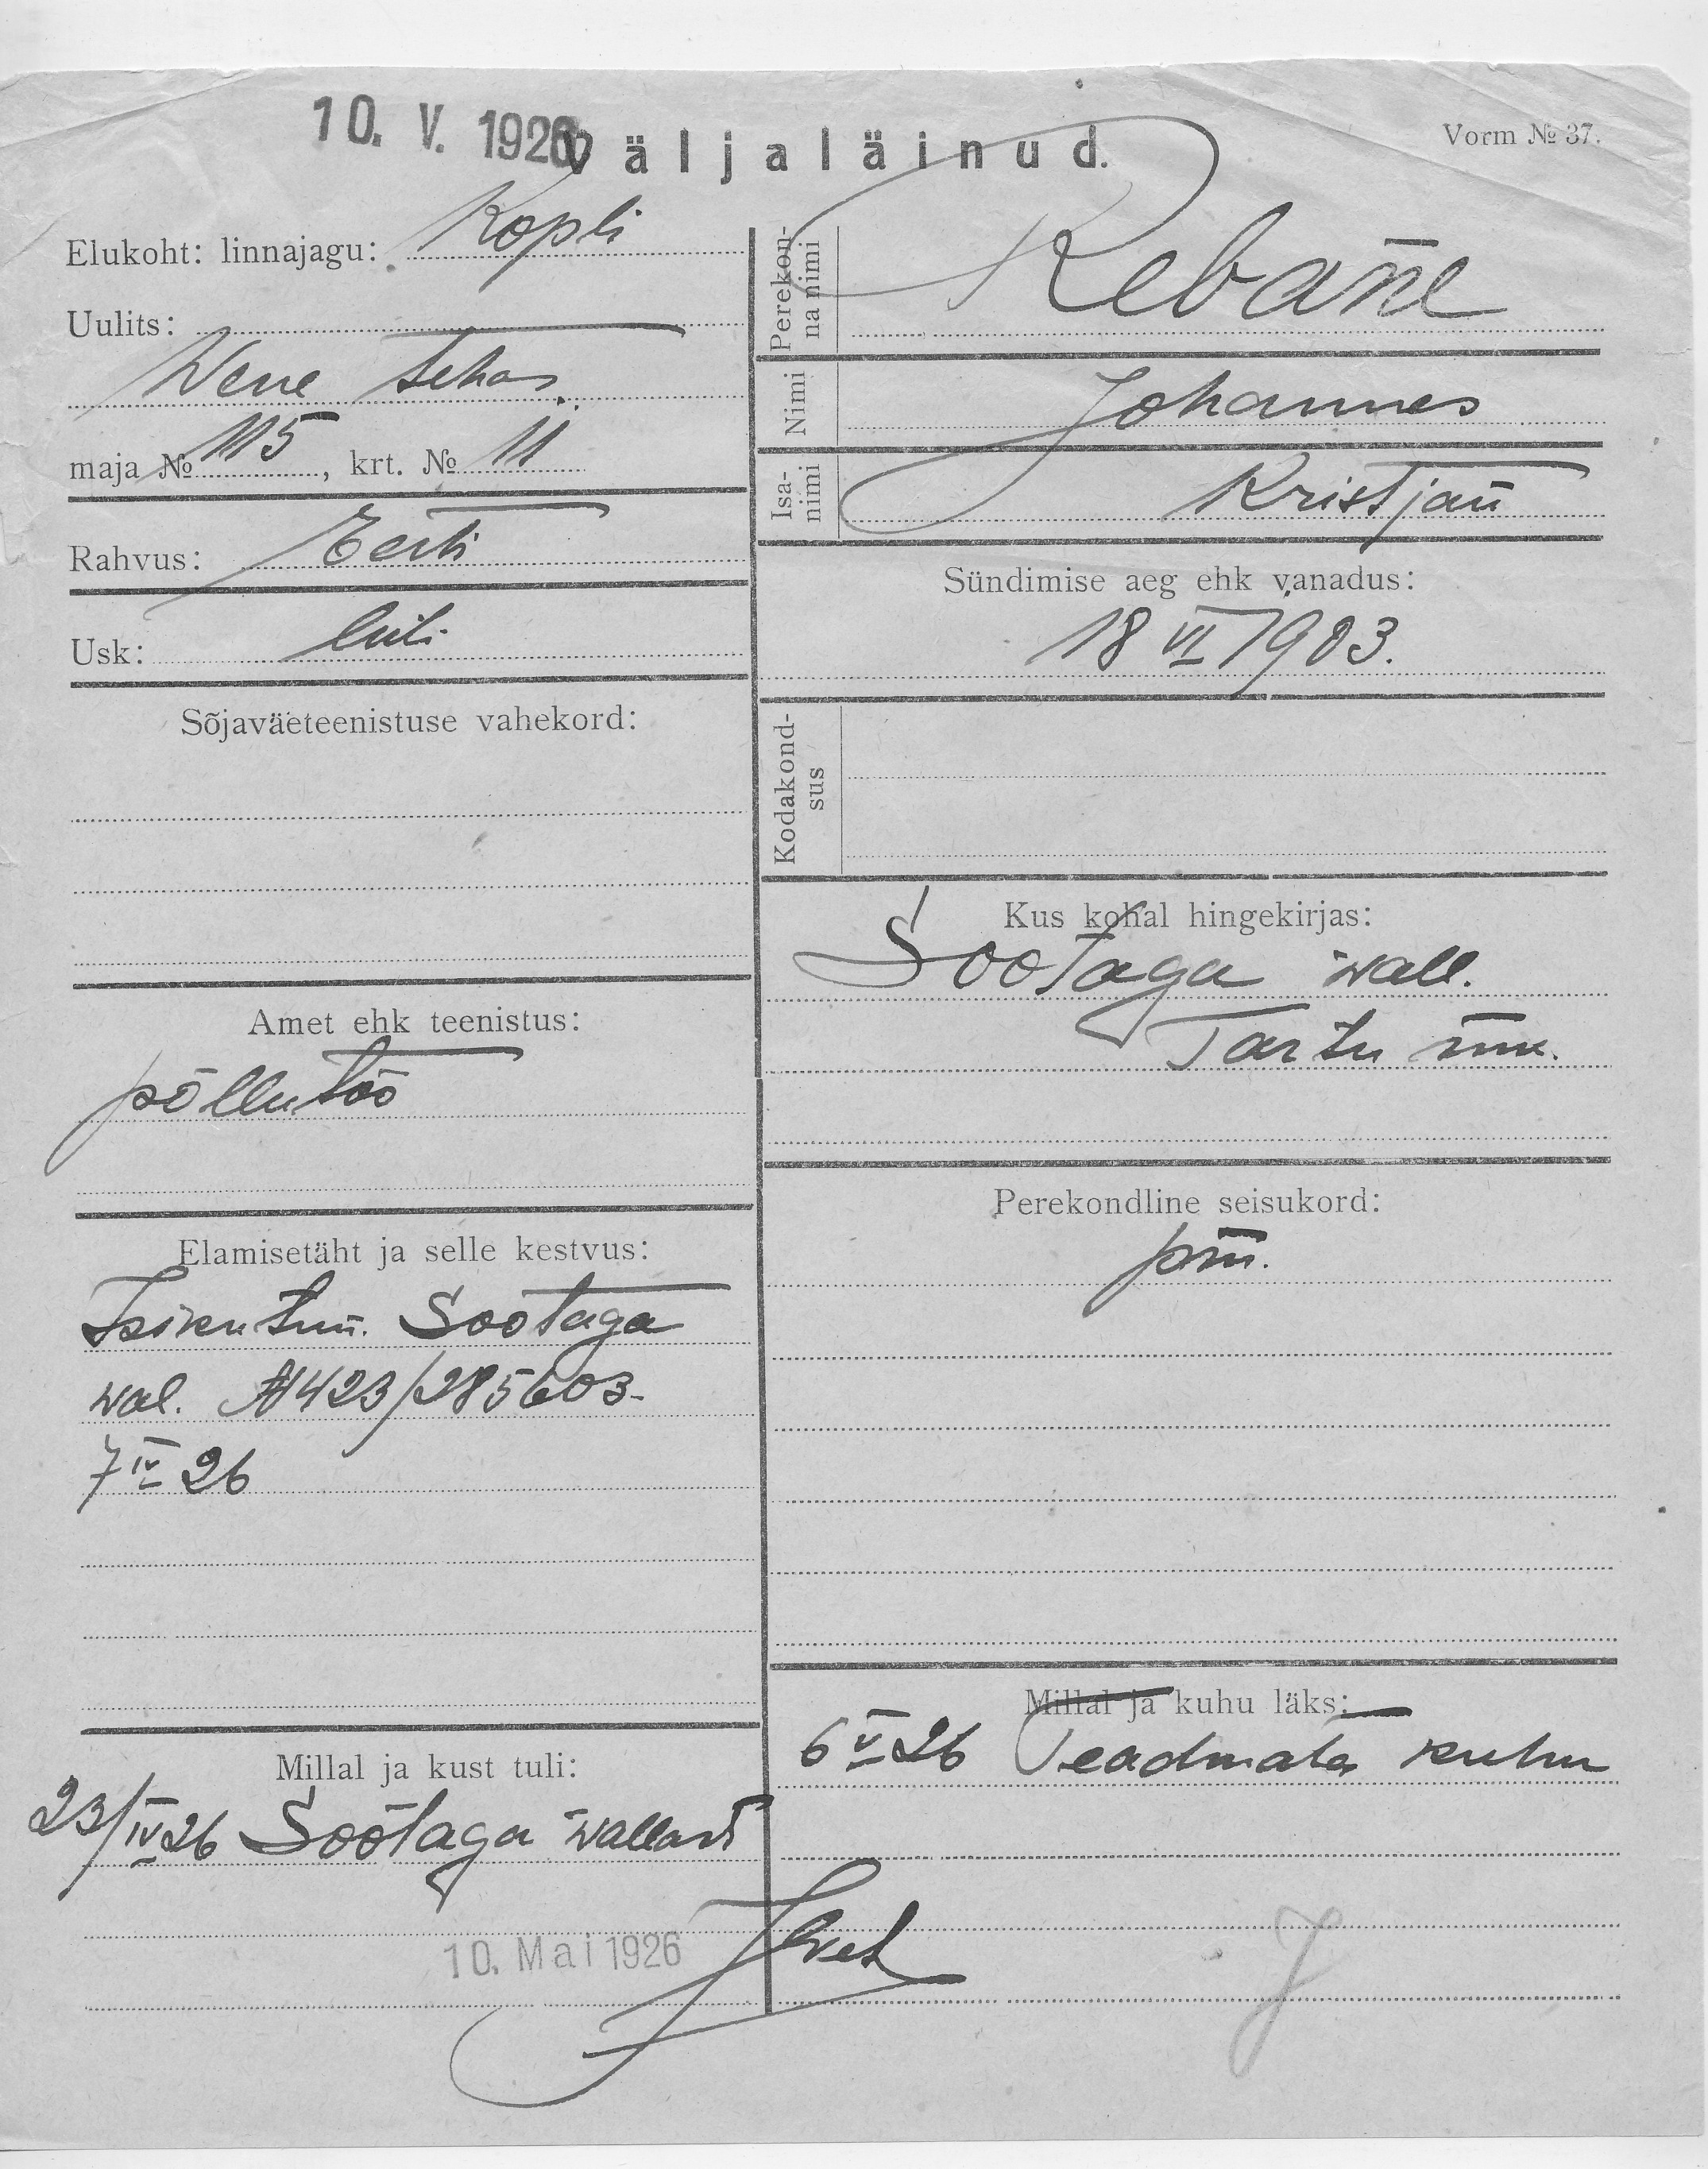 10. V. 1926
Väljaläinud.
Vorm № 37.
Elukoht: linnajagu: Kopli
Uulits:
Wene tehas.
maja № 115, krt. № 11
Rahvus: Eesti
Usk:
Sõjaväeteenistuse vahekord:
Amet ehk teenistus:
põllutöö
Elamisetäht ja selle kestvus:
Isikutun. Sootaga
wal. № 423/285603-
7 IV 26
Millal ja kust tuli:
23/IV 26 Sootaga wallast
10. Mai 1926
Perekonna nimi
Rebane
Nimi
Johannes
Isanimi
Kristjan
Sündimise aeg ehk vanadus:
18 VI 1903.
Kodakondsus
Kus kohal hingekirjas:
Sootaga wall.
Tartu
Perekondline seisukord:
Millal ja kuhu läks:
6 V 26 Teadmata kuhu
J